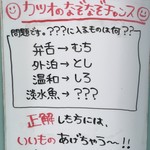 カツオのなぞなぞチャンス
問題です。???に入るものは何??
弁舌→むち
外泊→とし
温和→しろ
淡水魚→???
正解した方には、
いいものあげちゃう〜!!